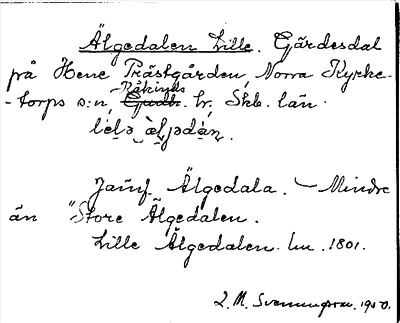 Älgedalen Lille. Gärdesdal
på Hene Prästgården, Norra Kyrke-
-torps s:n, Gudh. Kåkinds hr. Skb. län.
lìlə æ̀ljədán.
Jämf. Älgedala. – Mindre
än Store Älgedalen.
Lille Älgedalen. lm. 1801.